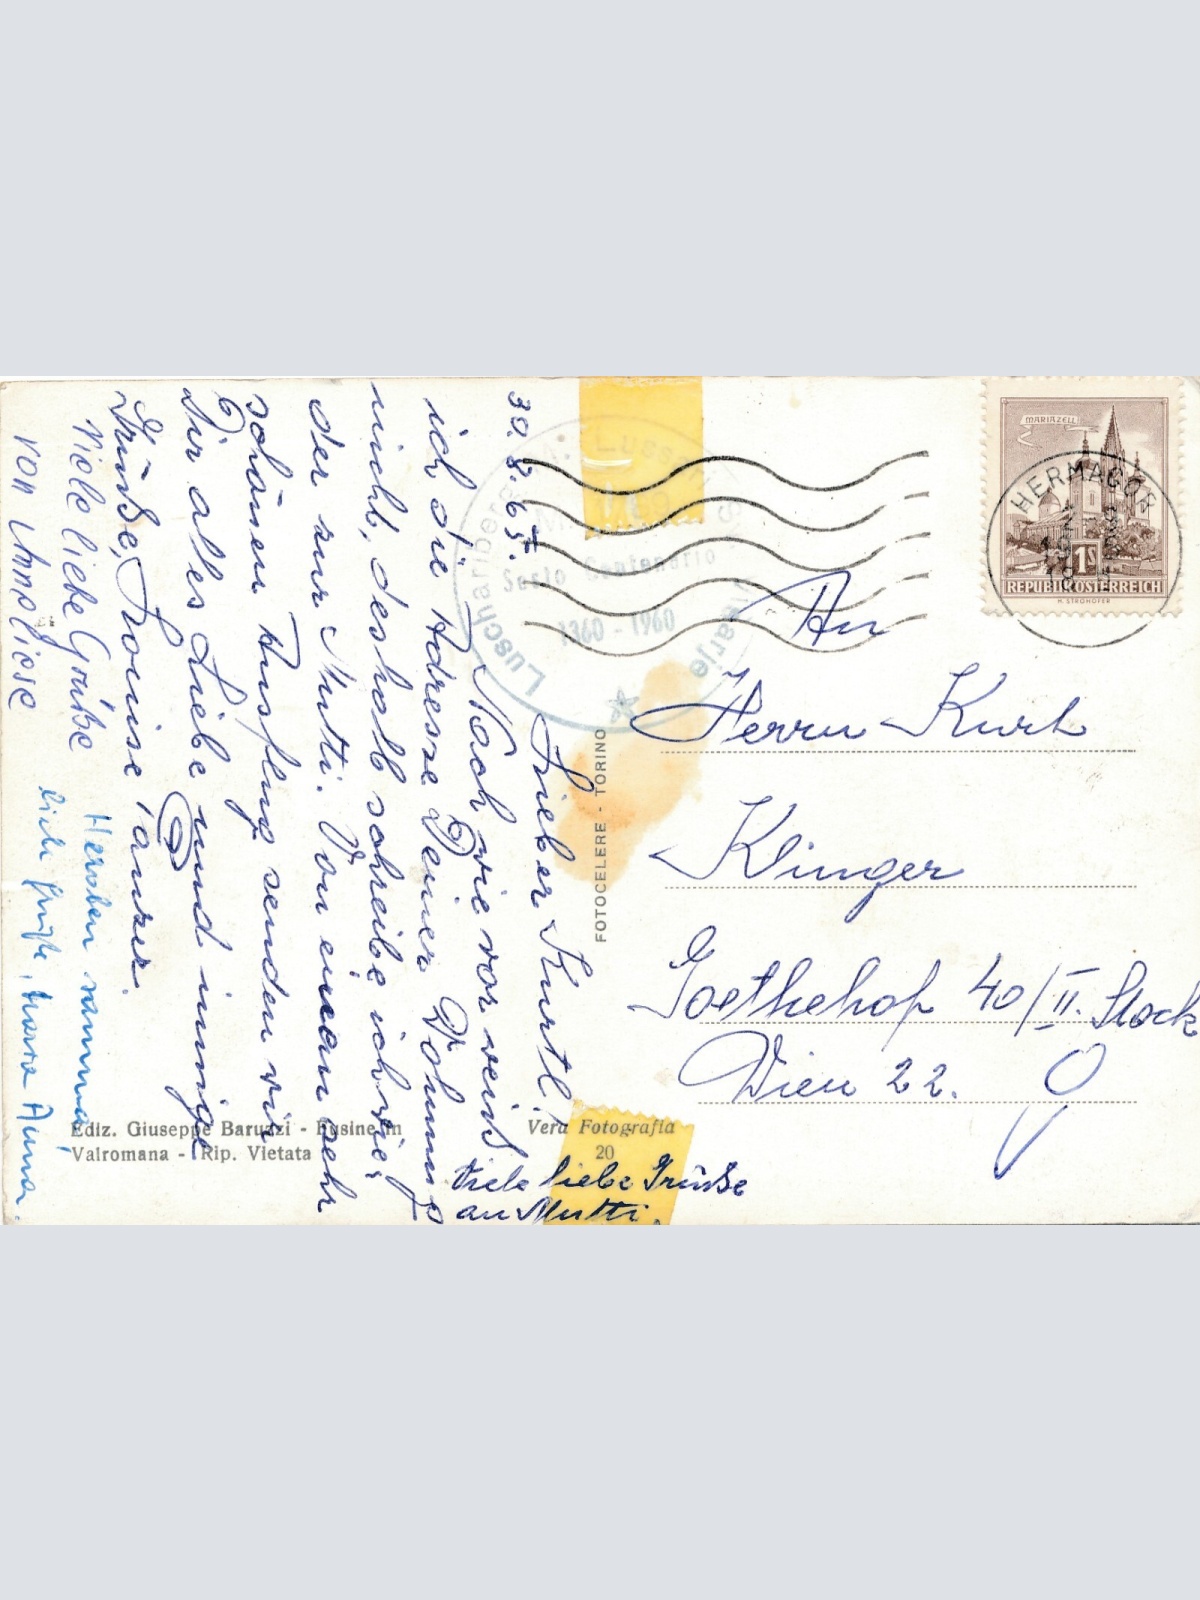 30. 8. 65.
Lieber Kurtl!
Noch wie vor weiß
ich die Adresse Deiner Wohnung
nicht, deshalb schreibe ich wie-
der zur Mutti. Von einem sehr
schönen Ausflug senden wir
Dir alles Liebe und innige
Grüße,
Viele liebe Grüße
von Annaliese
liebe Grüße,
Viele liebe Grüße
an Mutti.
An
Herrn Kurt
Klinger
Goethehof 40/II. Stock
Wien 22.
MARIAZELL
1S
REPUBLIK ÖSTERREICH
H. STROHOFER
HERMAGOR
Sesto Centenario
1360 - 1960
FOTOCELERE - TORINO
Ediz. Giuseppe Baruzzi - Fusine in
Valromana - Rip. Vietata
Vera Fotografia
20